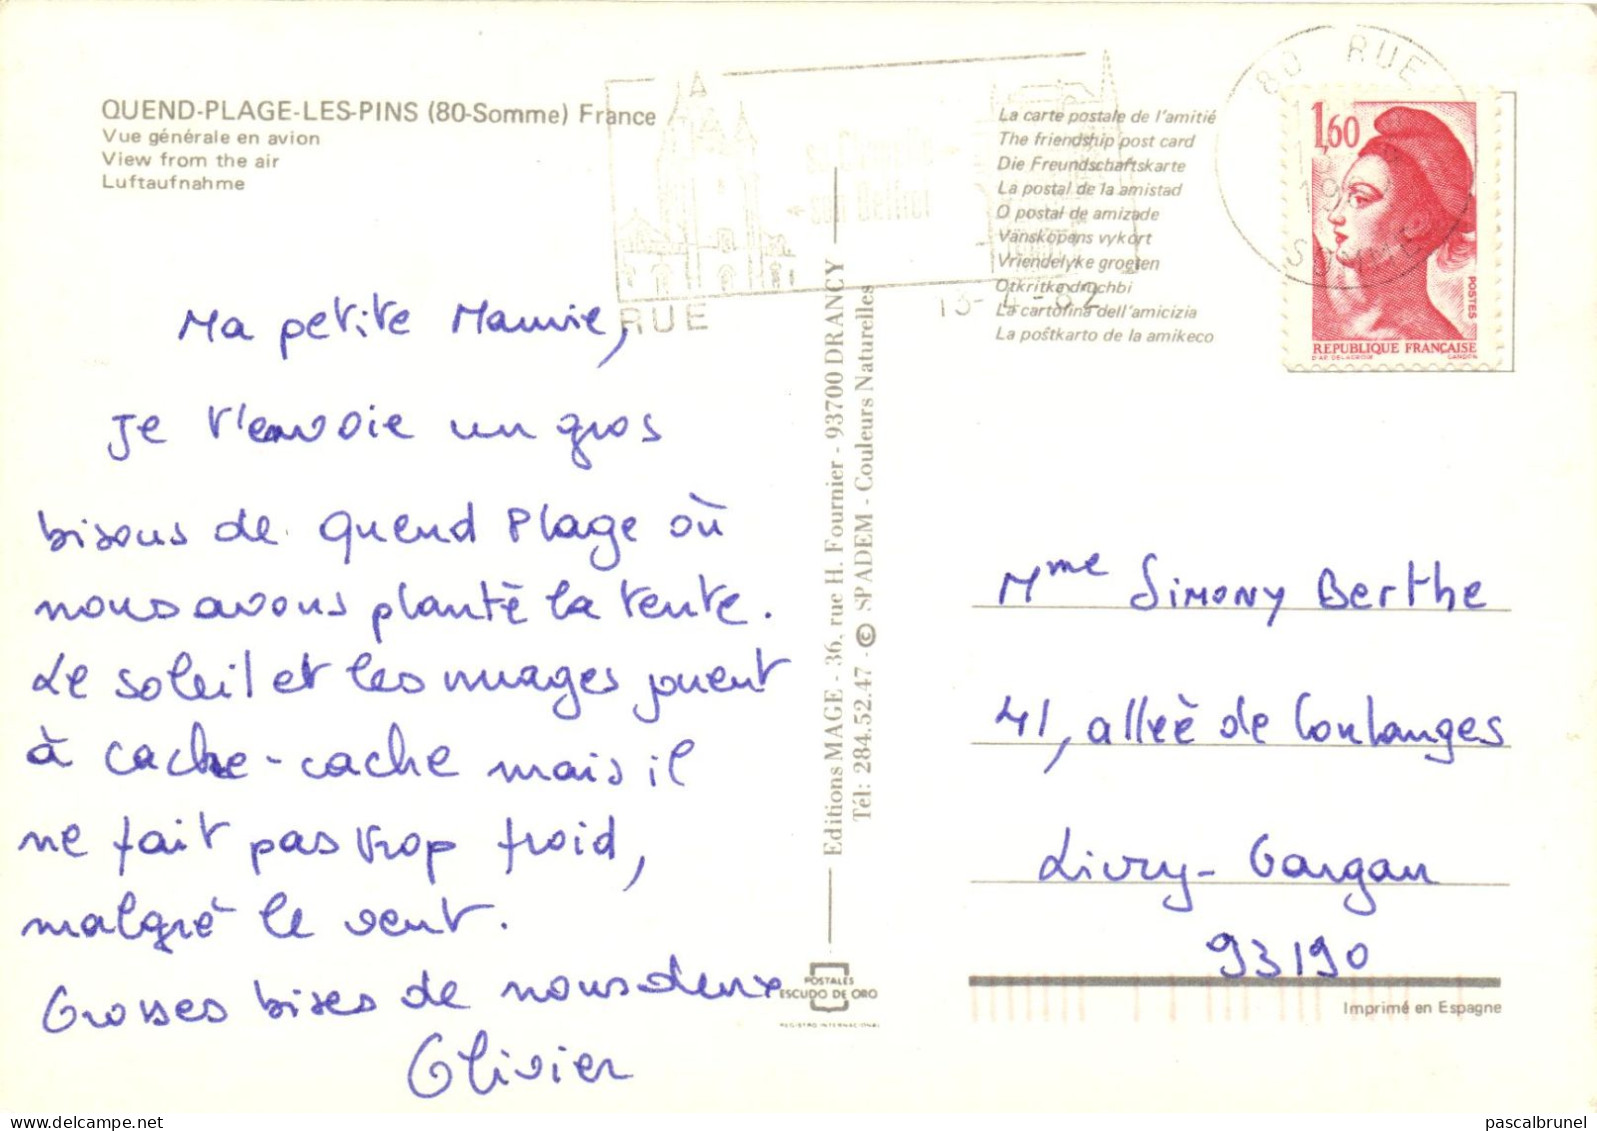 QUEND-PLAGE-LES-PINS (80-Somme) France
Vue générale en avion
View from the air
Luftaufnahme
Ma petite Mamie,
Je t'envoie un gros
bisous de Quend Plage où
nous avons planté la tente.
Le soleil et les nuages jouent
à cache-cache mais il
ne fait pas trop froid,
malgré le vent.
Grosses bises de nous deux
Olivier
RUE
13-4-82
Editions MAGE - 36, rue H. Fournier - 93700 DRANCY
Tél: 284.52.47 - © SPADEM - Couleurs Naturelles
POSTALES
ESCUDO DE ORO
REGISTRO INTERNACIONAL
La carte postale de l'amitié
The friendship post card
Die Freundschaftskarte
La postal de la amistad
O postal de amizade
Vänskapens vykort
Vriendelyke groeten
Otkritka druchbi
La cartolina dell'amicizia
La poŝtkarto de la amikeco
80 RUE
SOMME
1,60
POSTES
REPUBLIQUE FRANÇAISE
D'AP. DELACROIX GANDON
Mme SIMONY Berthe
41, allée de Coulanges
Livry-Gargan
93190
Imprimé en Espagne
pascalbrunel